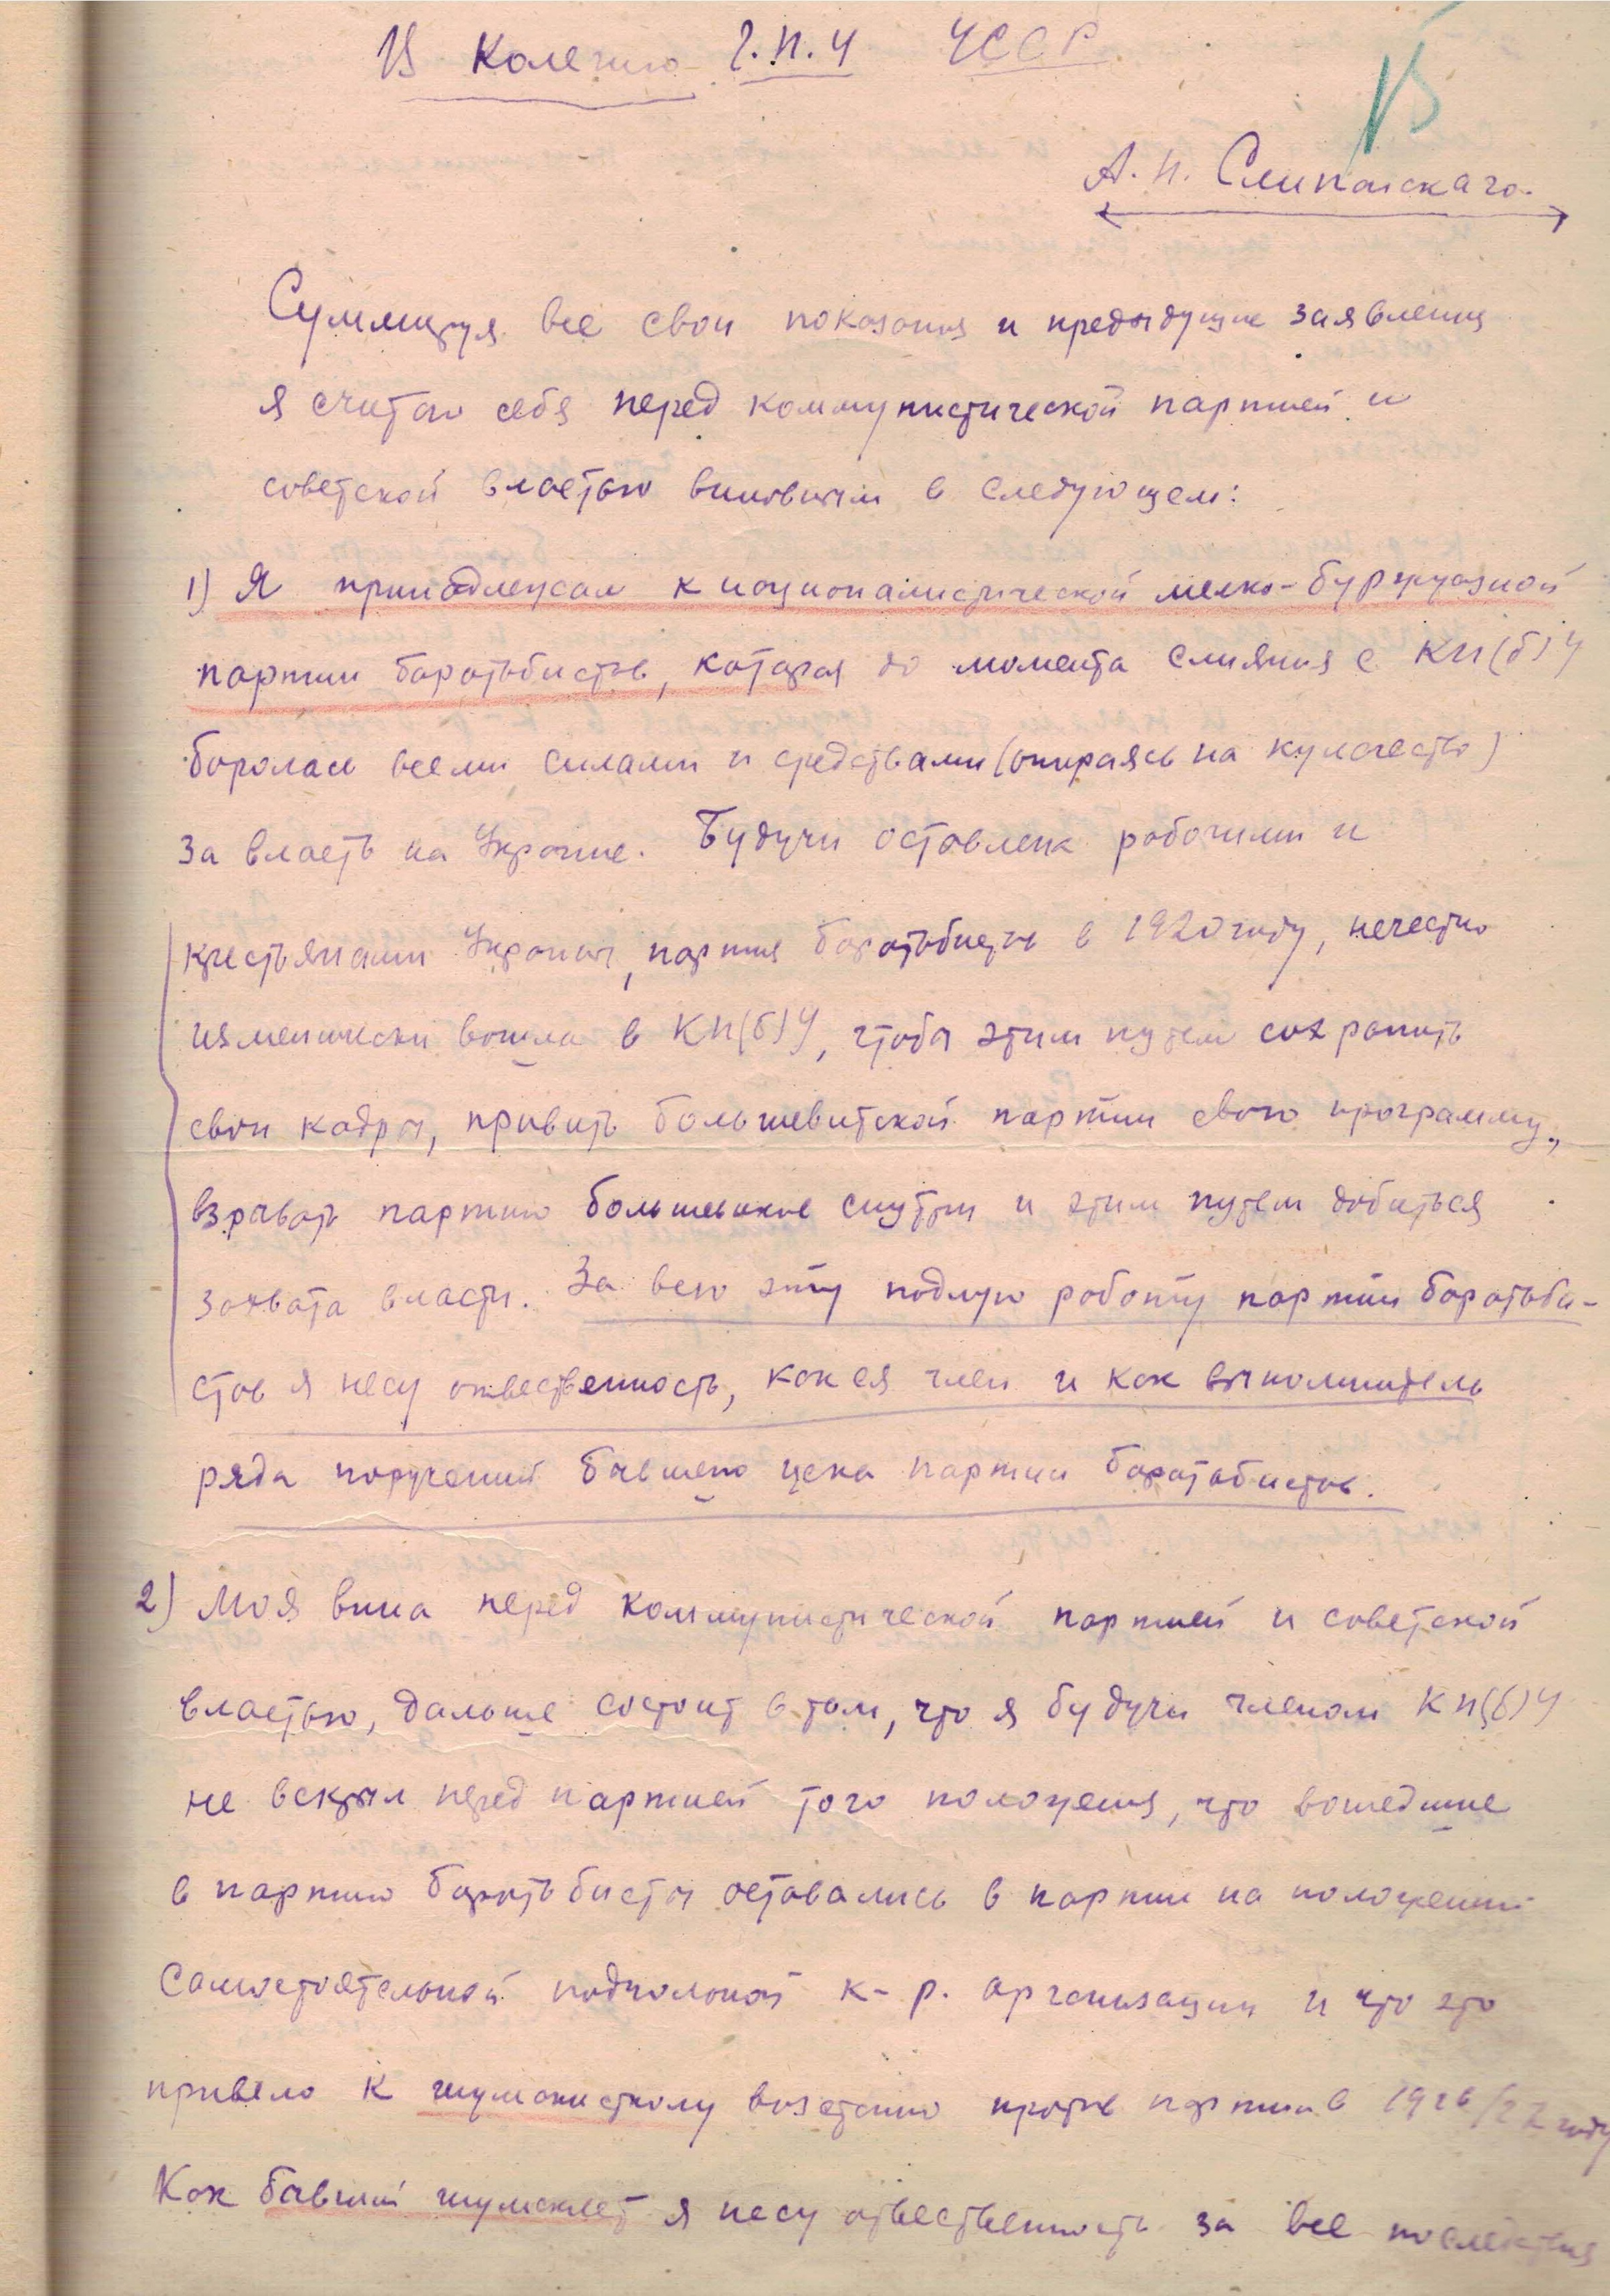 В Колегию Г.П.У УССР
А. И. Слипанскаго.
Суммируя все свои показания и предыдущие заявления
я считаю себя перед коммунистической партией и
советской властью виновным в следующем:
1) Я принадлежал к националистической мелко-буржуазной
партии боротьбистов, которая до момента слияния с КП(б)У
боролась всеми силами и средствами (опираясь на кулачество)
за власть на Украине. Будучи оставлена рабочими и
крестьянами Украины, партия боротьбистов в 1920 году, нечестно
изменически вошла в КП(б)У, чтобы этим путем сохранить
свои кадры, привить большевитской партии свою программу,
взрывать партию большевиков снутри и этим путем добиться
захвата власти. За всю эту подлую работу партии боротьби-
стов я несу ответственность, как ея член и как выполнитель
ряда поручений бывшего цека партии боротьбистов.
2) Моя вина перед коммунистической партией и советской
властью, дальше состоит в том, что я будучи членом КП(б)У
не вскрыл перед партией того положения, что вошедшие
в партию боротьбисты оставались в партии на положении
самостоятельной подпольной к-р. организации и что это
привело к шумскистскому возстанию против партии в 1926/27 году
Как бывший шумскист я несу ответственность за все последствия